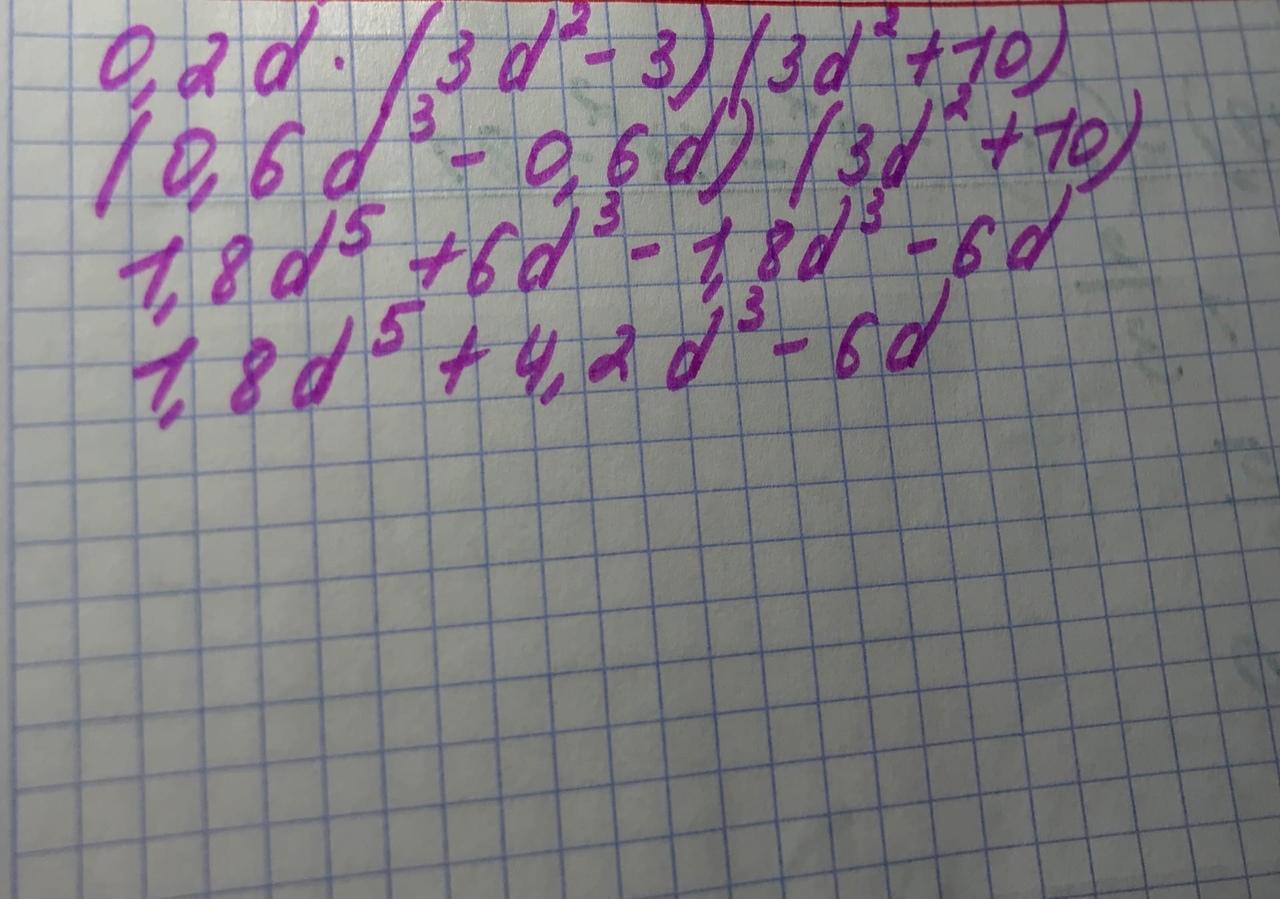 0,2d · (3d² - 3) (3d² + 10)
(0,6d³ - 0,6d) (3d² + 10)
1,8d⁵ + 6d³ - 1,8d³ - 6d
1,8d⁵ + 4,2d³ - 6d